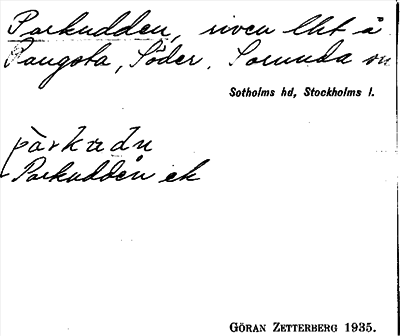 Parkudden, riven lht å
Rangsta, Söder, Sorunda sn
Sotholms hd, Stockholms l.
pàrkudn
Parkudden ek
GÖRAN ZETTERBERG 1935.